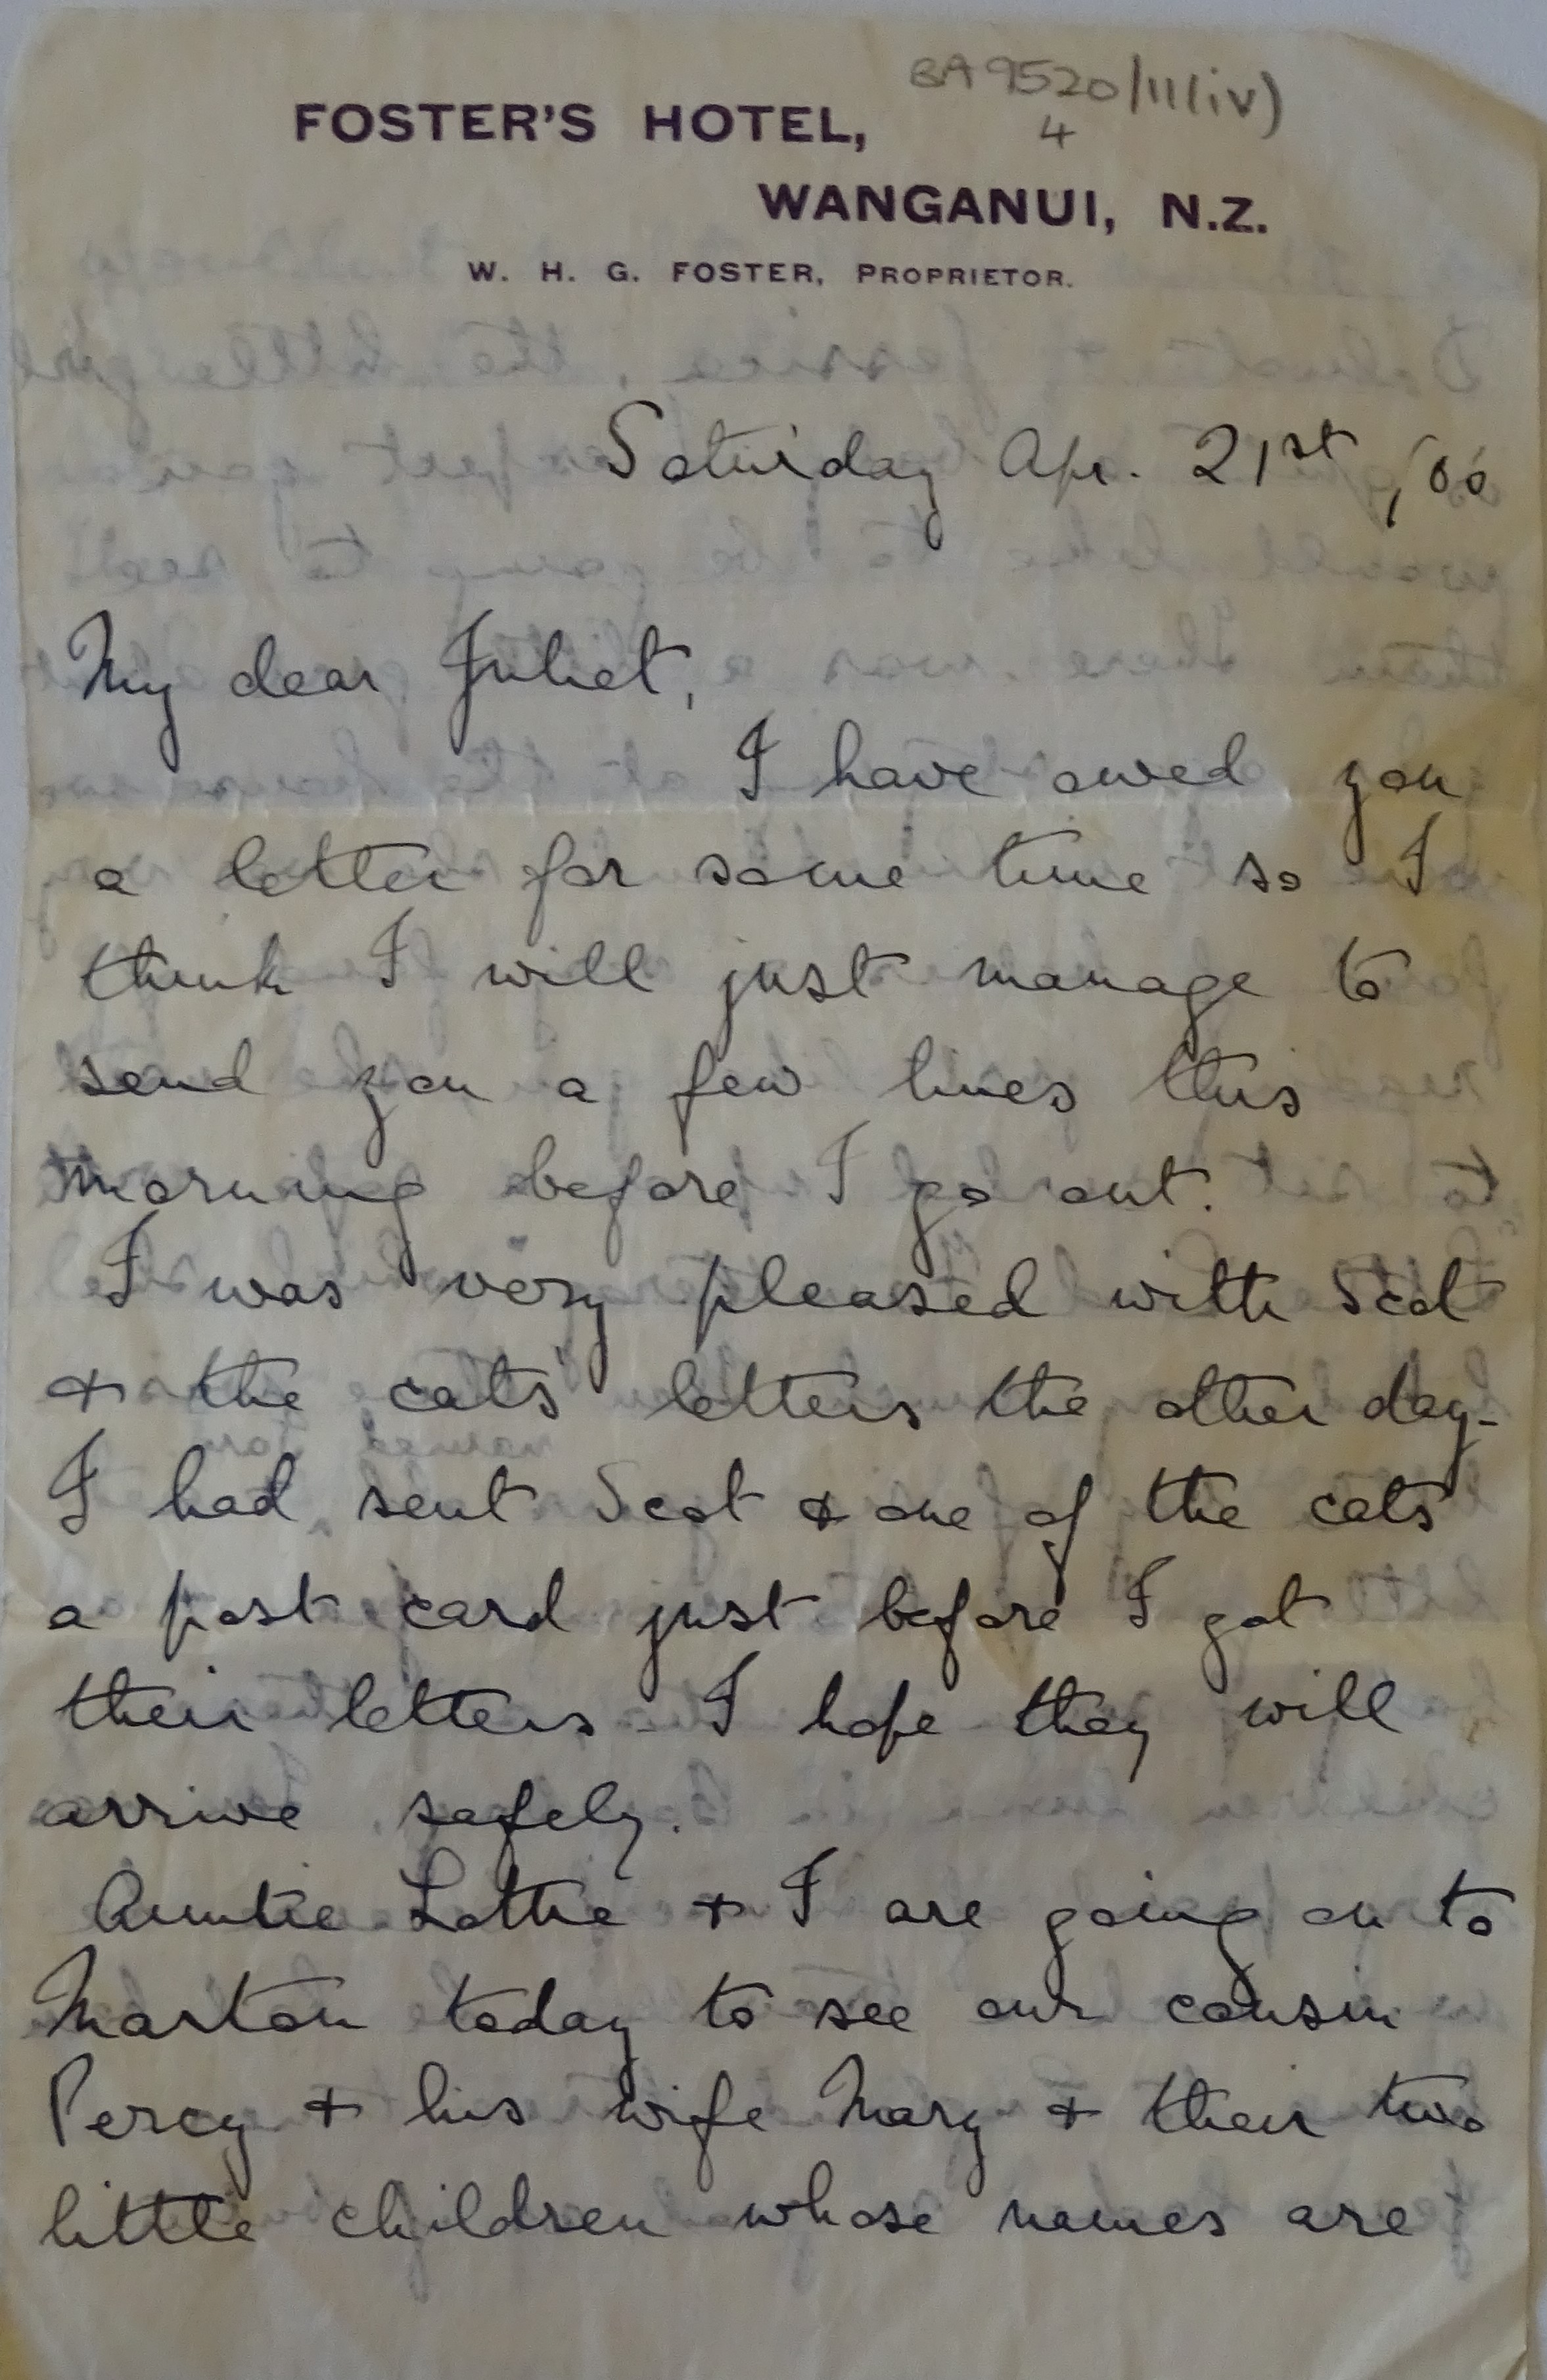 BA 9520/11(iv)
4
FOSTER'S HOTEL,
WANGANUI, N.Z.
W. H. G. FOSTER, PROPRIETOR.
Saturday Apr. 21st, '06
My dear Juliet,
I have owed you
a letter for some time so I
think I will just manage to
send you a few lines this
morning before I go out.
I was very pleased with Scot
& the cats' letters the other day-
I had sent Scot & one of the cats
a post card just before I got
their letters - I hope they will
arrive safely.
Auntie Lottie & I are going on to
Marton today to see our cousin
Percy & his wife Mary & their two
little children whose names are